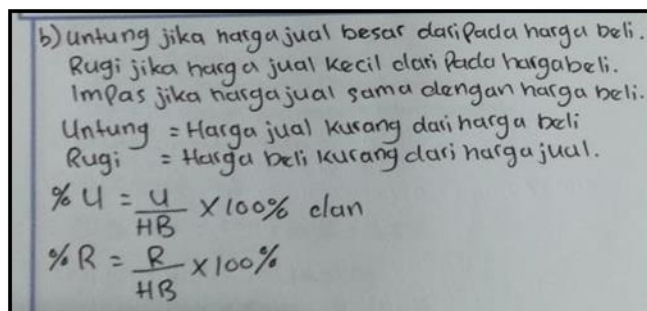 b) untung jika harga jual besar daripada harga beli.
Rugi jika harga jual kecil dari pada harga beli.
Impas jika harga jual sama dengan harga beli.
Untung = Harga jual kurang dari harga beli
Rugi = Harga beli kurang dari harga jual.
% U = U/HB × 100% dan
% R = R/HB × 100%